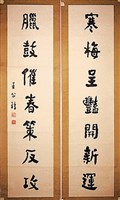 寒梅呈豔開新運
臘鼓催春策反攻